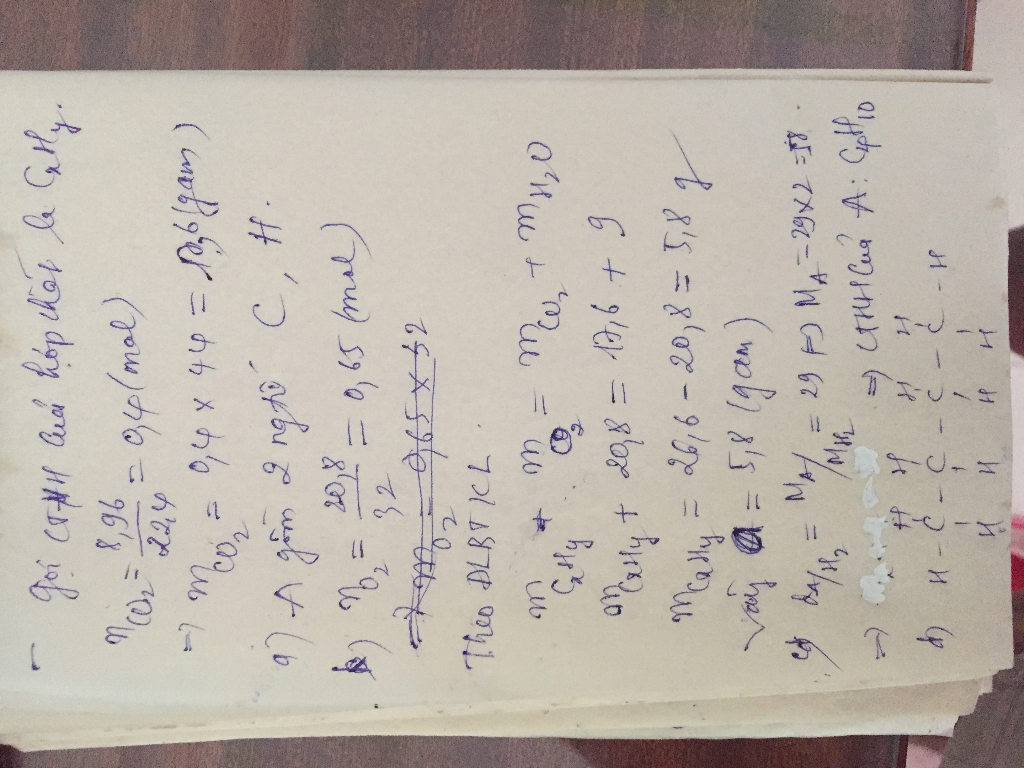 - Gọi CTHH của hợp chất là CxHy.
nCO2 = 8,96/22,4 = 0,4 (mol)
=> mCO2 = 0,4 x 44 = 17,6 (gam)
a) A gồm 2 ngtố C, H.
b) nO2 = 20,8/32 = 0,65 (mol)
=> mO2 = 0,65 x 32
Theo ĐLBTKL.
mCxHy + mO2 = mCO2 + mH2O
mCxHy + 20,8 = 17,6 + 9
mCxHy = 26,6 - 20,8 = 5,8 g
Vậy a = 5,8 (gam)
c) dA/H2 = MA/MH2 = 29 => MA = 29x2 = 58.
=> => CTHH của A: C4H10
d) H H H H
H - C - C - C - C - H
H H H H